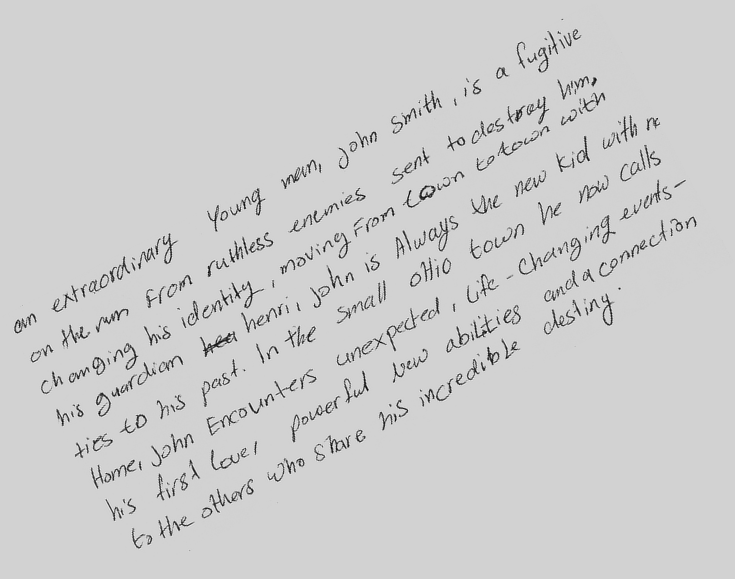 an extraordinary young man, John Smith, is a fugitive
on the run From ruthless enemies sent to destroy him,
changing his identity, moving From town to town with
his guardian henri, John is Always the new kid with no
ties to his past. In the small OHio town he now calls
Home, John Encounters unexpected, Life-Changing events-
his first love, powerful new abilities and a connection
to the others who share his incredible destiny.